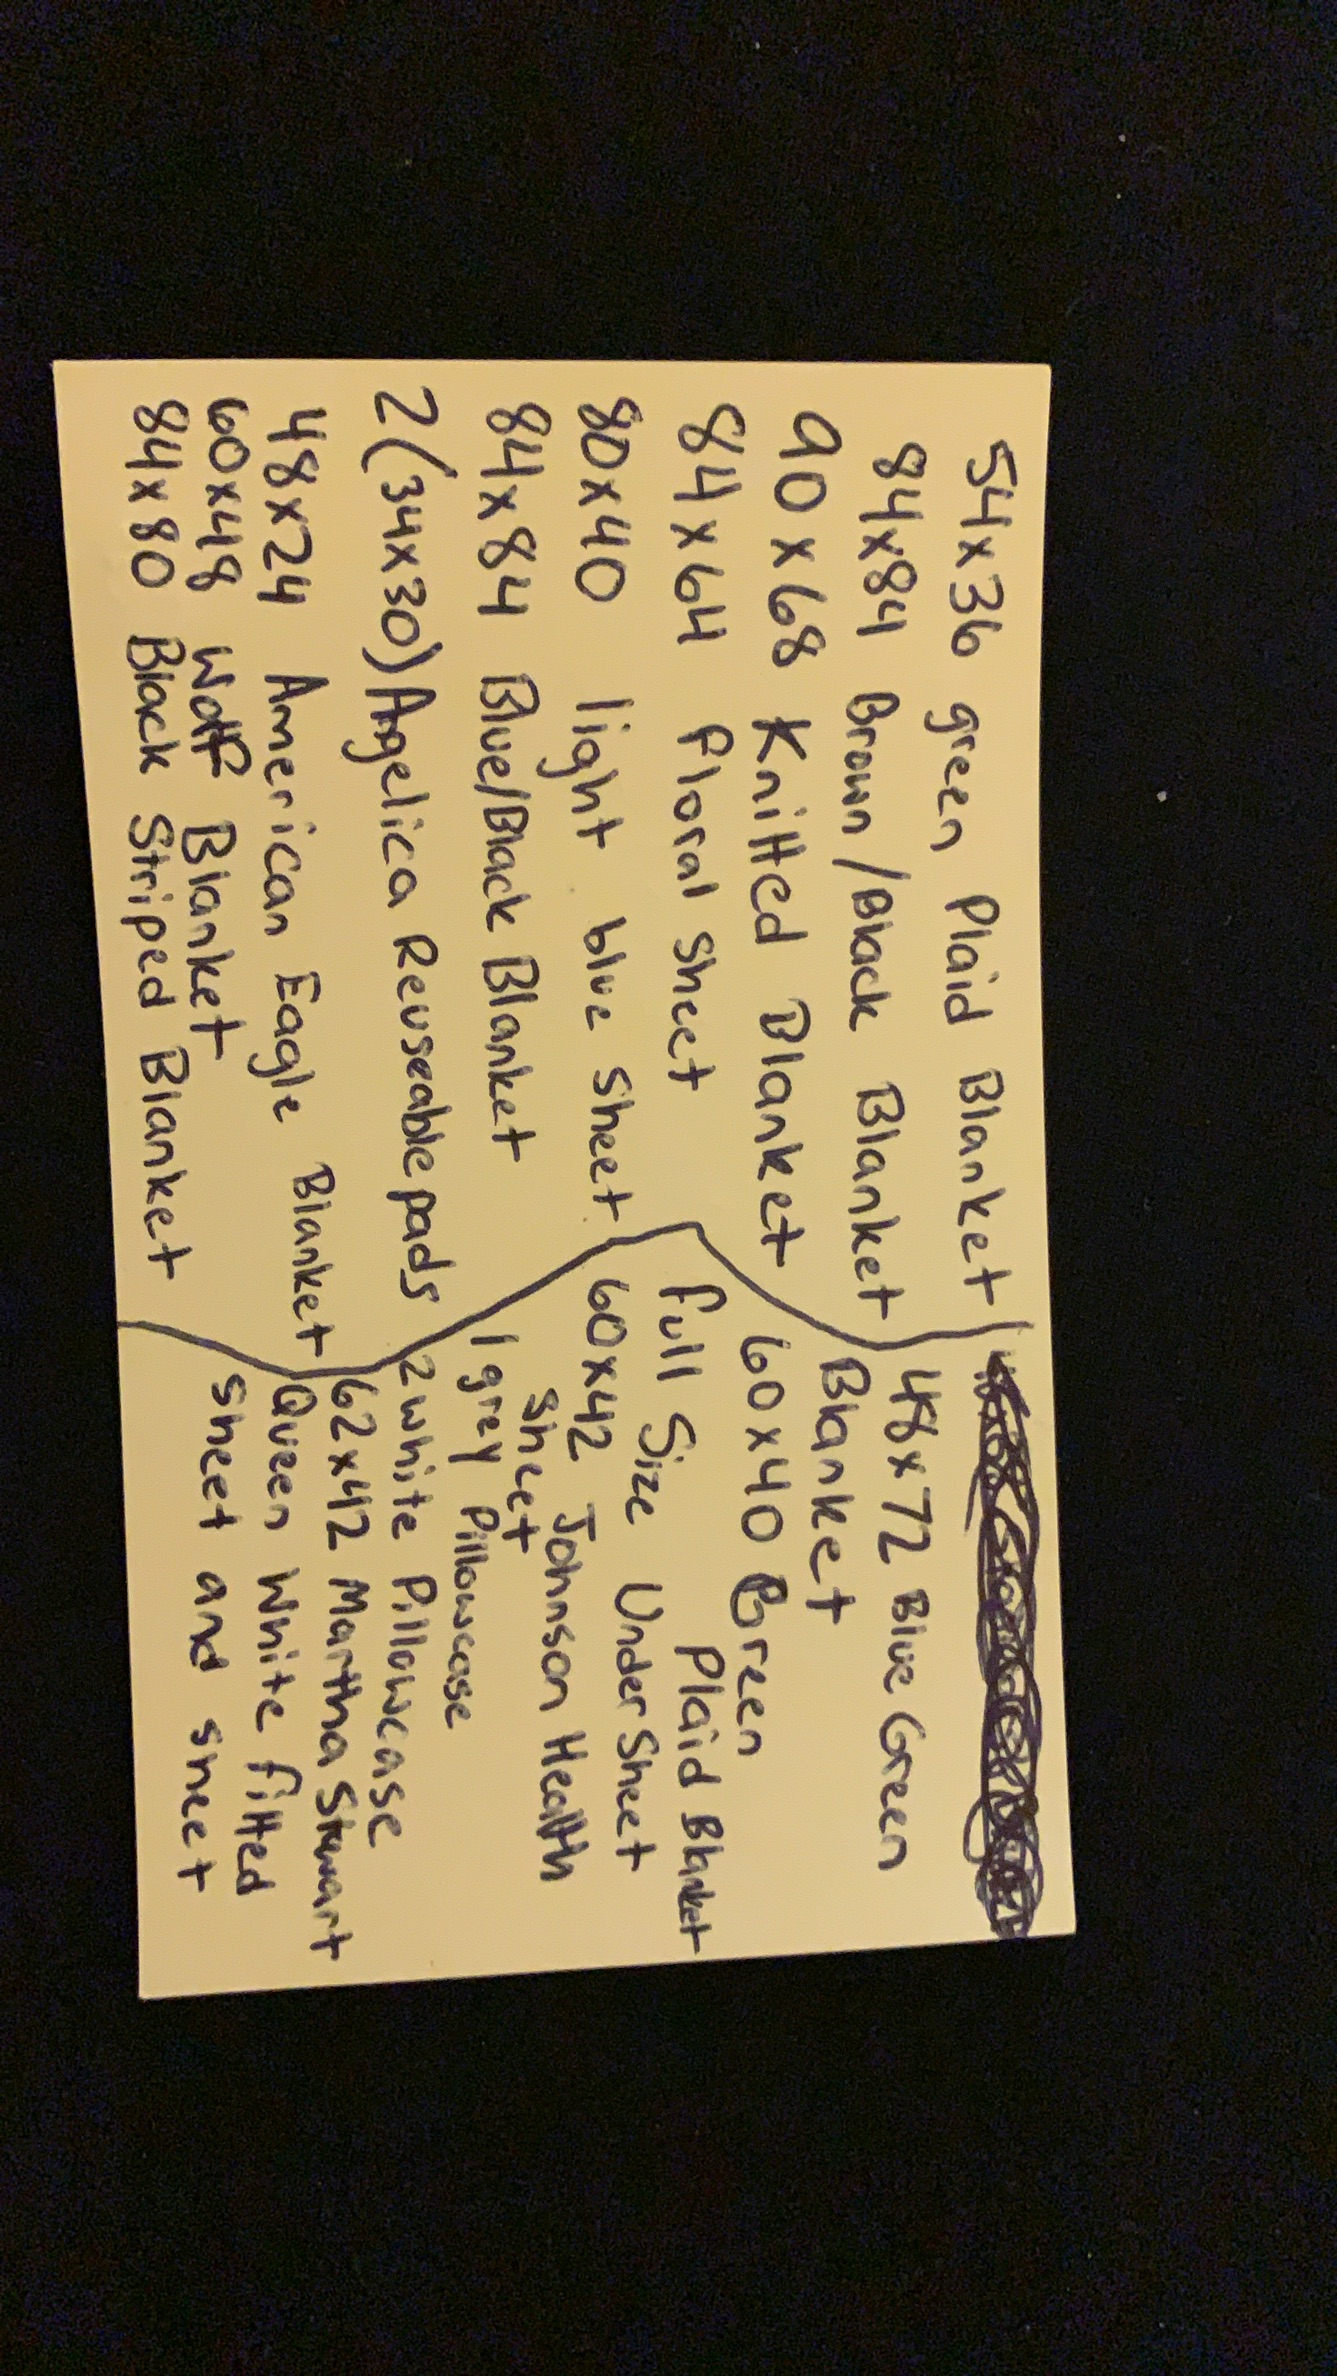 54x36 green Plaid Blanket
84x84 Brown/Black Blanket
90x68 Knitted Blanket
84x64 floral sheet
80x40 light blue sheet
84x84 Blue/Black Blanket
2(34x30) Angelica Reuseable pads
48x24 American Eagle Blanket
60x48 Wolf Blanket
84x80 Black Striped Blanket
48x72 Blue Green
Blanket
60x40 Green
Plaid Blanket
full Size Under Sheet
60x42 Johnson Health
Sheet
1 grey Pillowcase
2 white Pillowcase
62x42 Martha Stewart
Queen White fitted
sheet and sheet